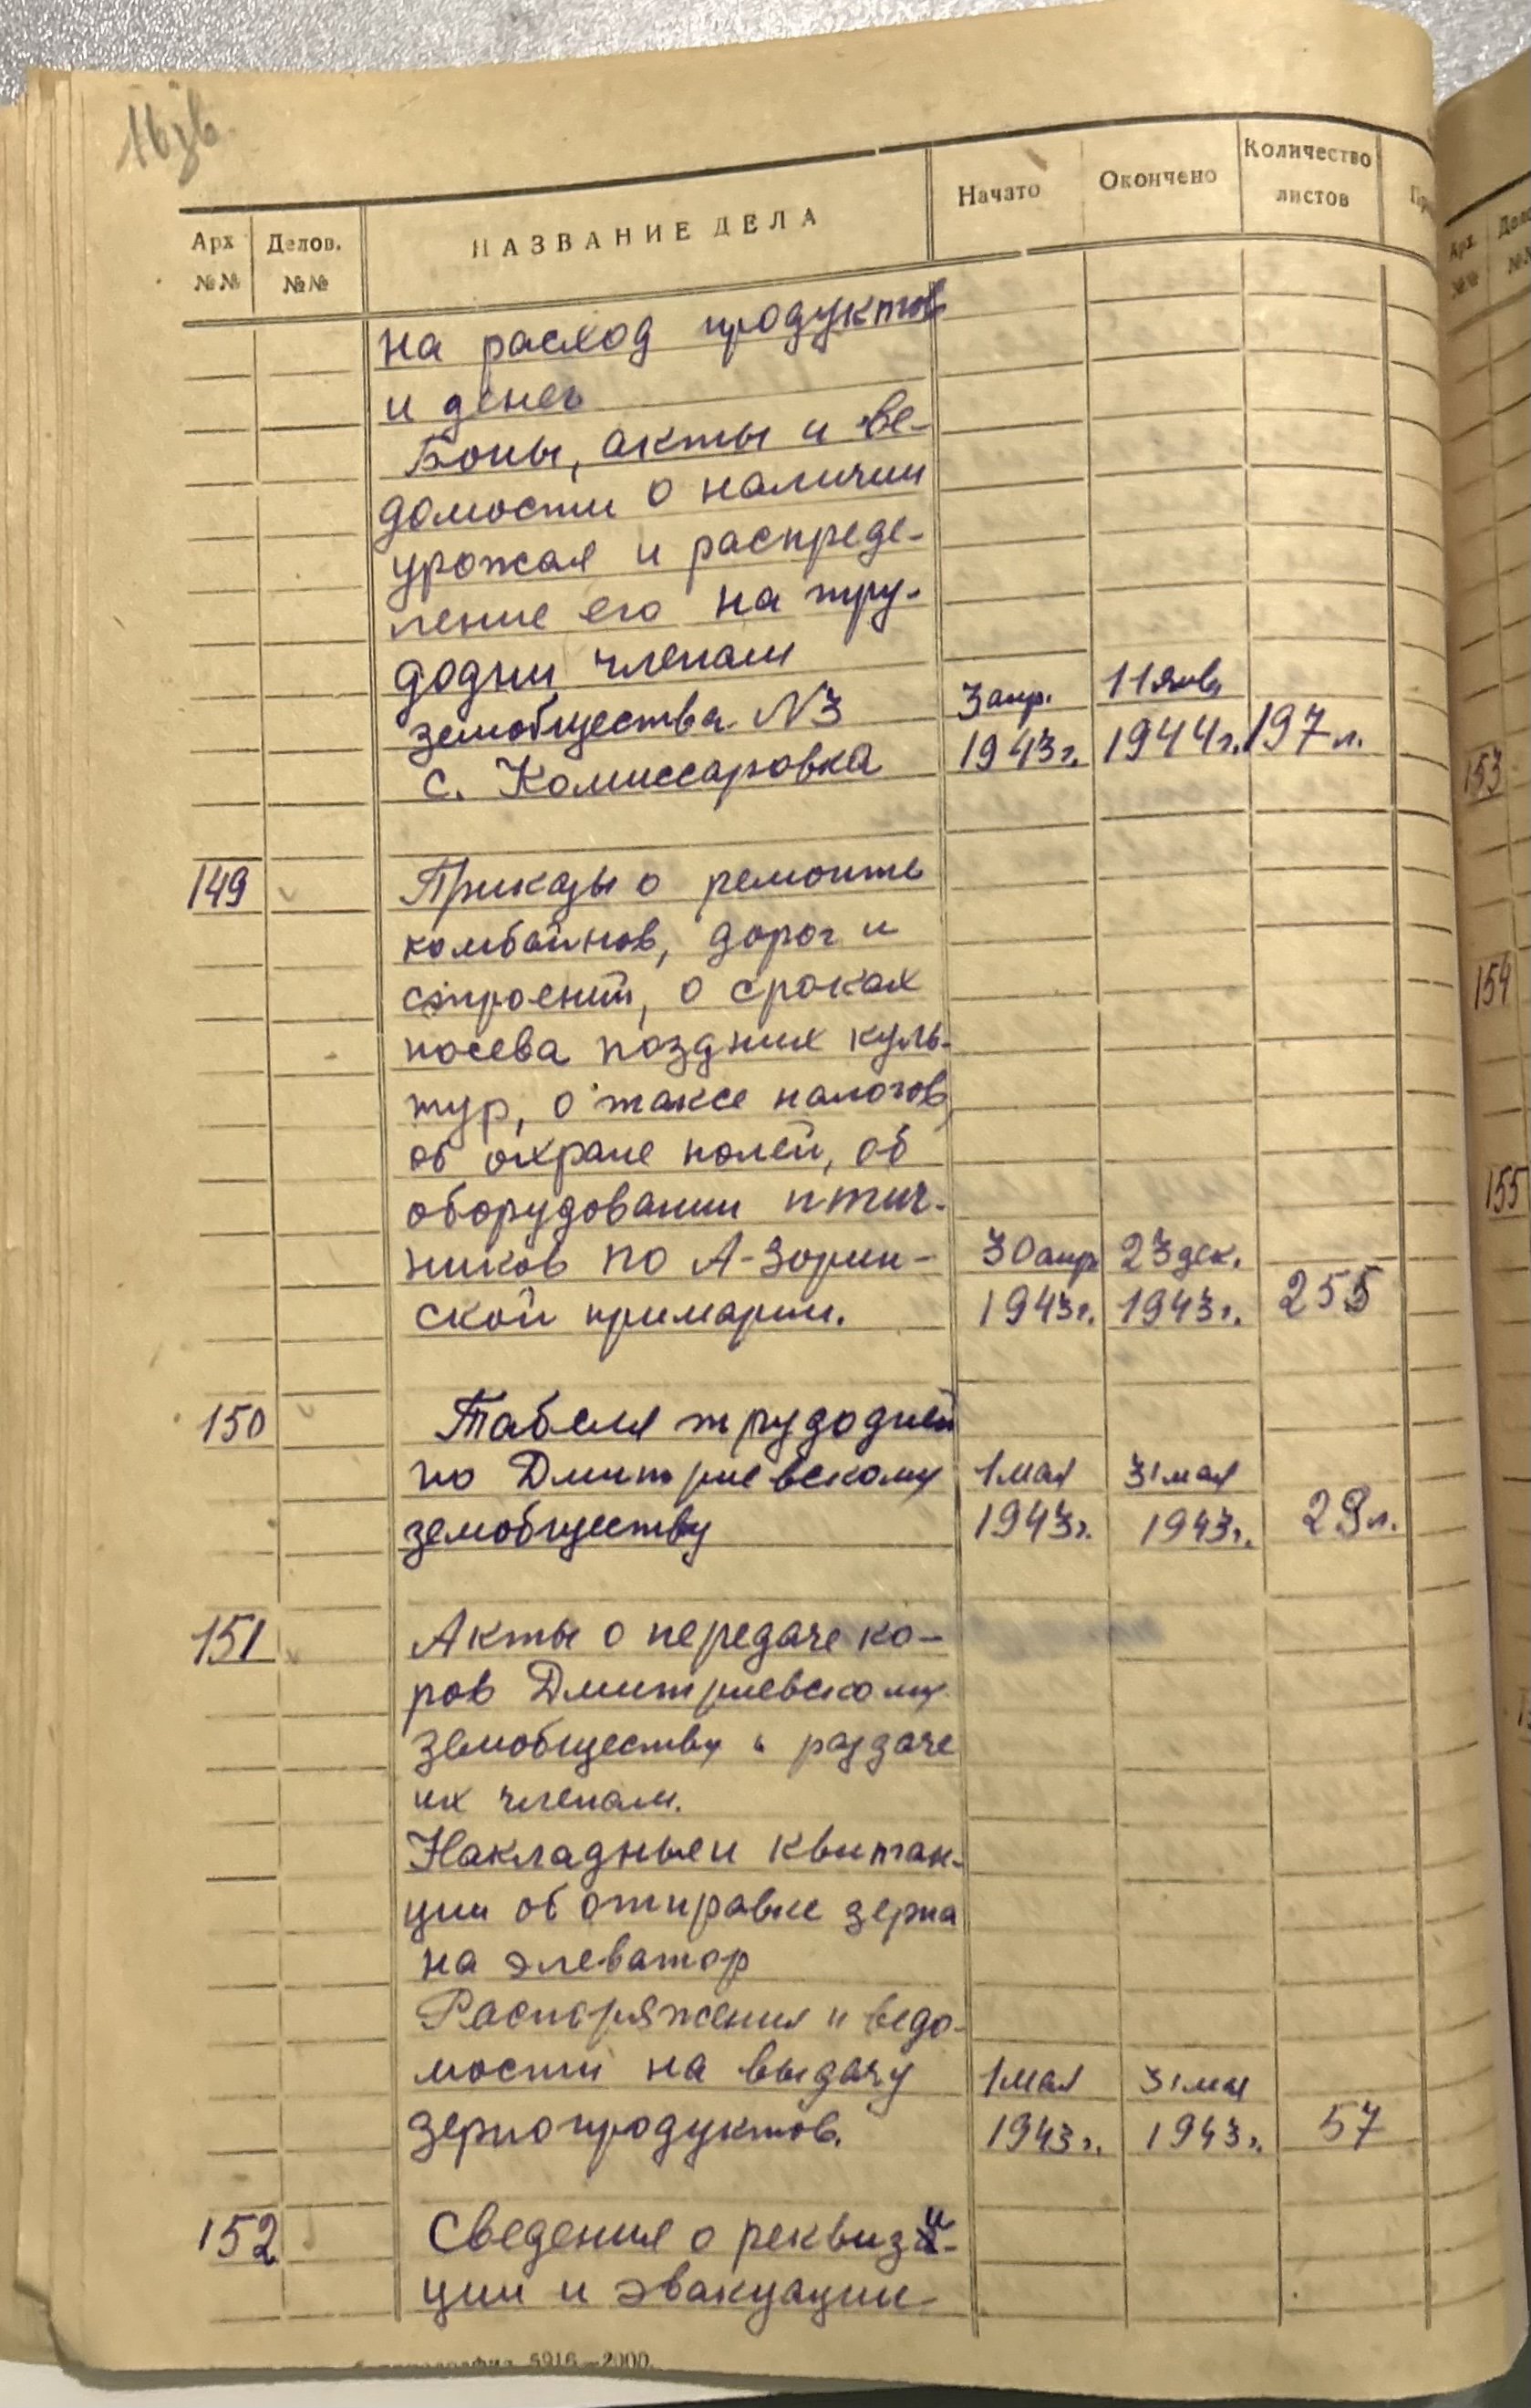 16 зв.
Арх №№ Делов. №№ НАЗВАНИЕ ДЕЛА Начато Окончено Количество листов
на расход продуктов
и денег
Боны, акты и ве-
домости о наличии
урожая и распреде-
ление его на тру-
додни членам
земобщества N3 3 апр. 11 янв.
с. Комиссаровка 1943 г. 1944 г. 197 л.
149 Приказы о ремонте
комбайнов, дорог и
строений, о сроках
посева поздних куль-
тур, о таксе налогов,
об охране полей, об
оборудовании птич-
ников по А-Зорин- 30 апр. 23 дек.
ской примарии. 1943 г. 1943 г. 255
150 Табеля трудодней
по Дмитриевскому 1 мая 31 мая
земобществу 1943 г. 1943 г. 29 л.
151 Акты о передаче ко-
ров Дмитриевскому
земобществу и раздаче
их членам.
Накладные и квитан-
ции об отправке зерна
на элеватор
Распоряжения и ведо-
мости на выдачу 1 мая 31 мая
зернопродуктов. 1943 г. 1943 г. 57
152 Сведения о реквизи-
ции и эвакуации
5916—2000.
Арх. №№
153
154
155